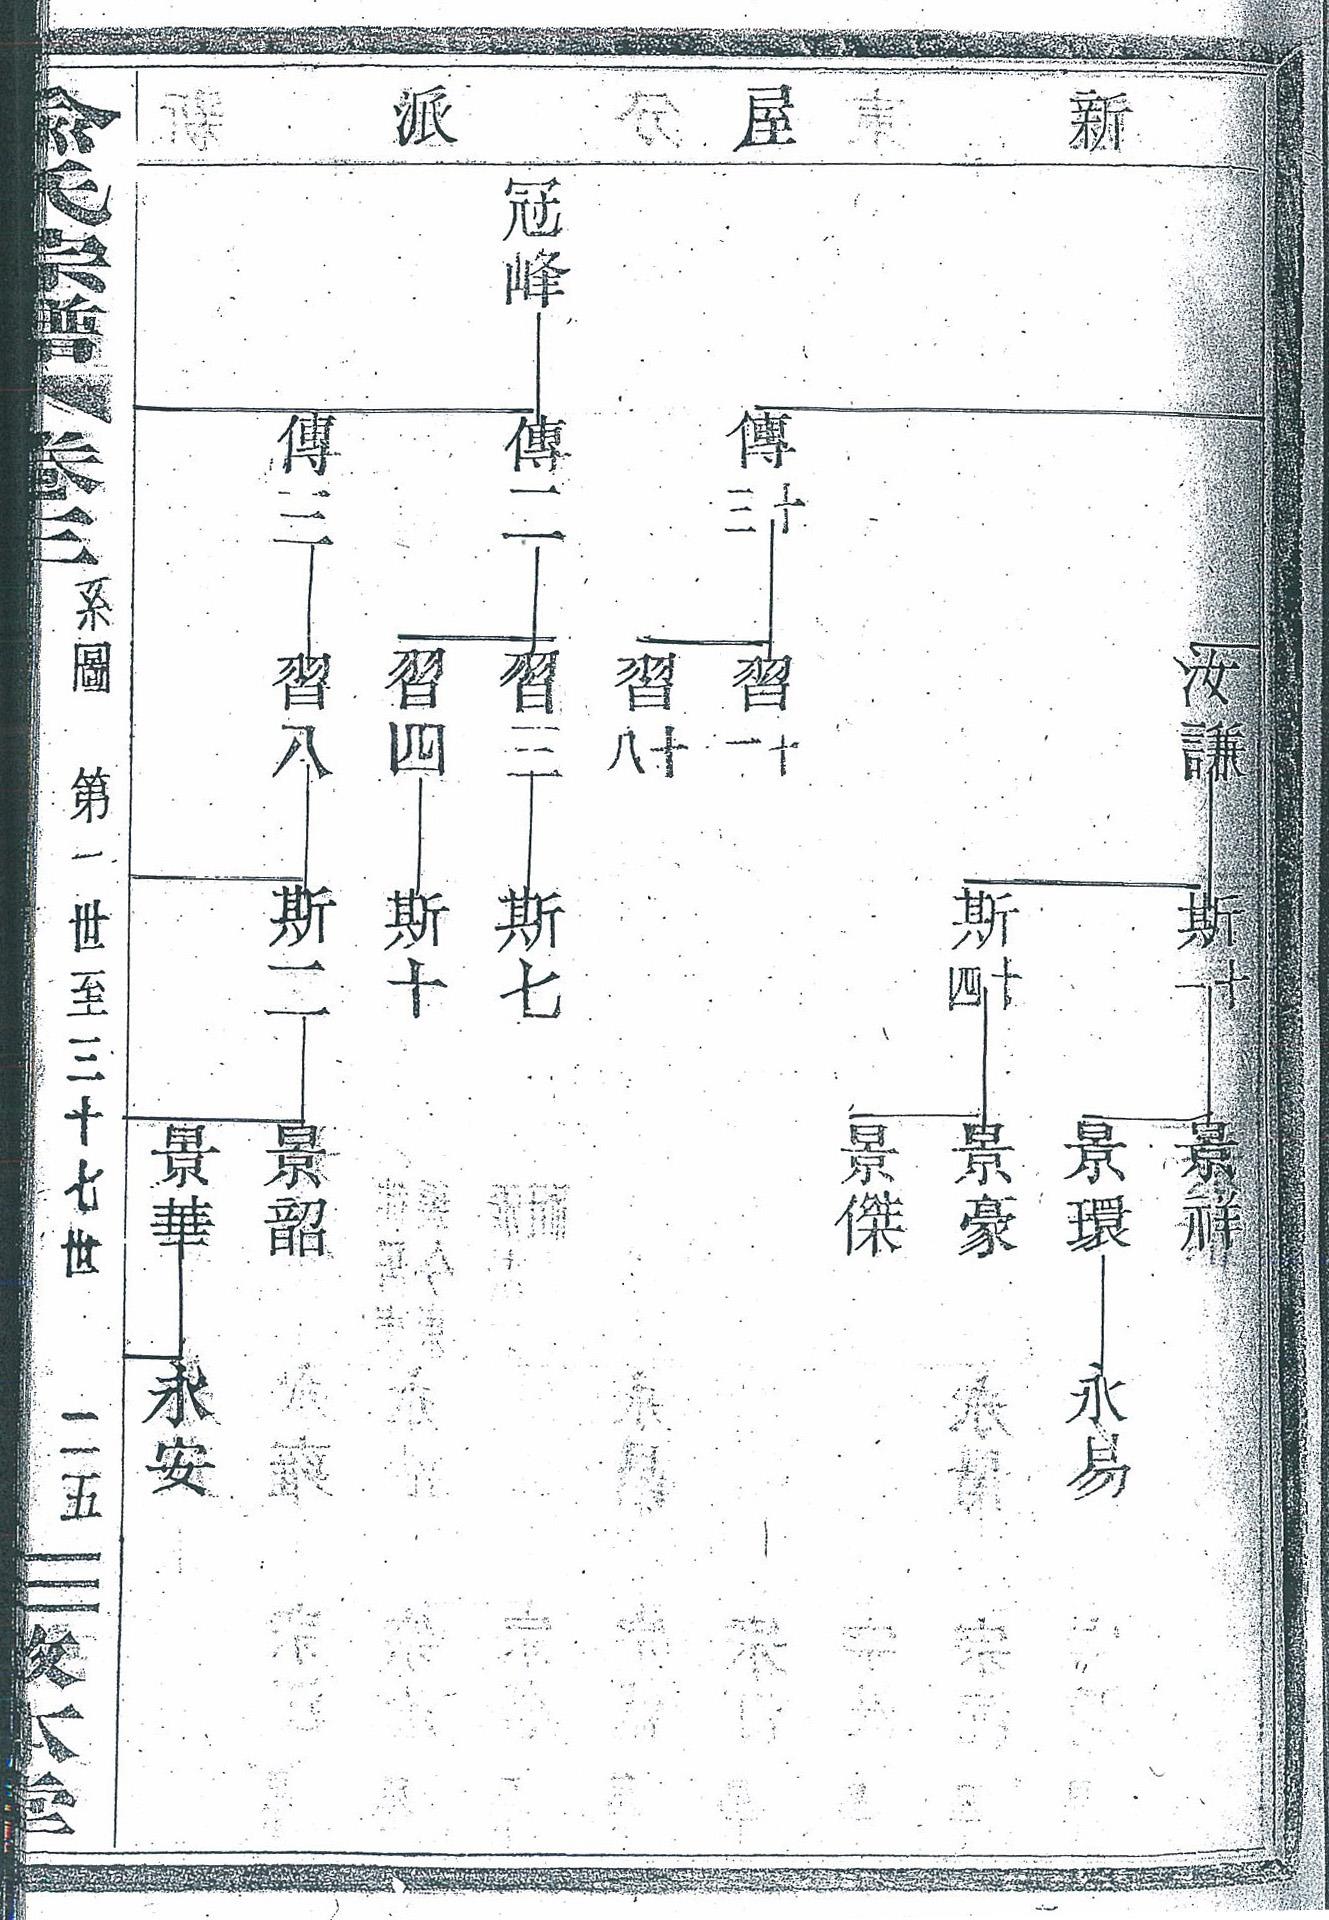 新屋派
冠峰
傳十三
傳二
傳三
汝謙
習十一
習十八
習三
習四
習八
斯十一
斯十四
斯七
斯十
斯二
景祥
景環
景豪
景傑
景韶
景華
永易
永安
俞氏宗譜 卷三 系圖 第一世至三十七世 二五 敘本堂